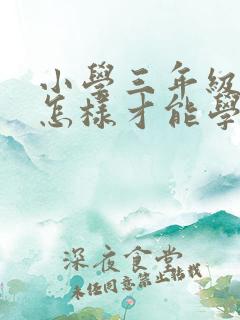 小學三年級
怎樣才能學
深夜食堂
未任同意禁止转载